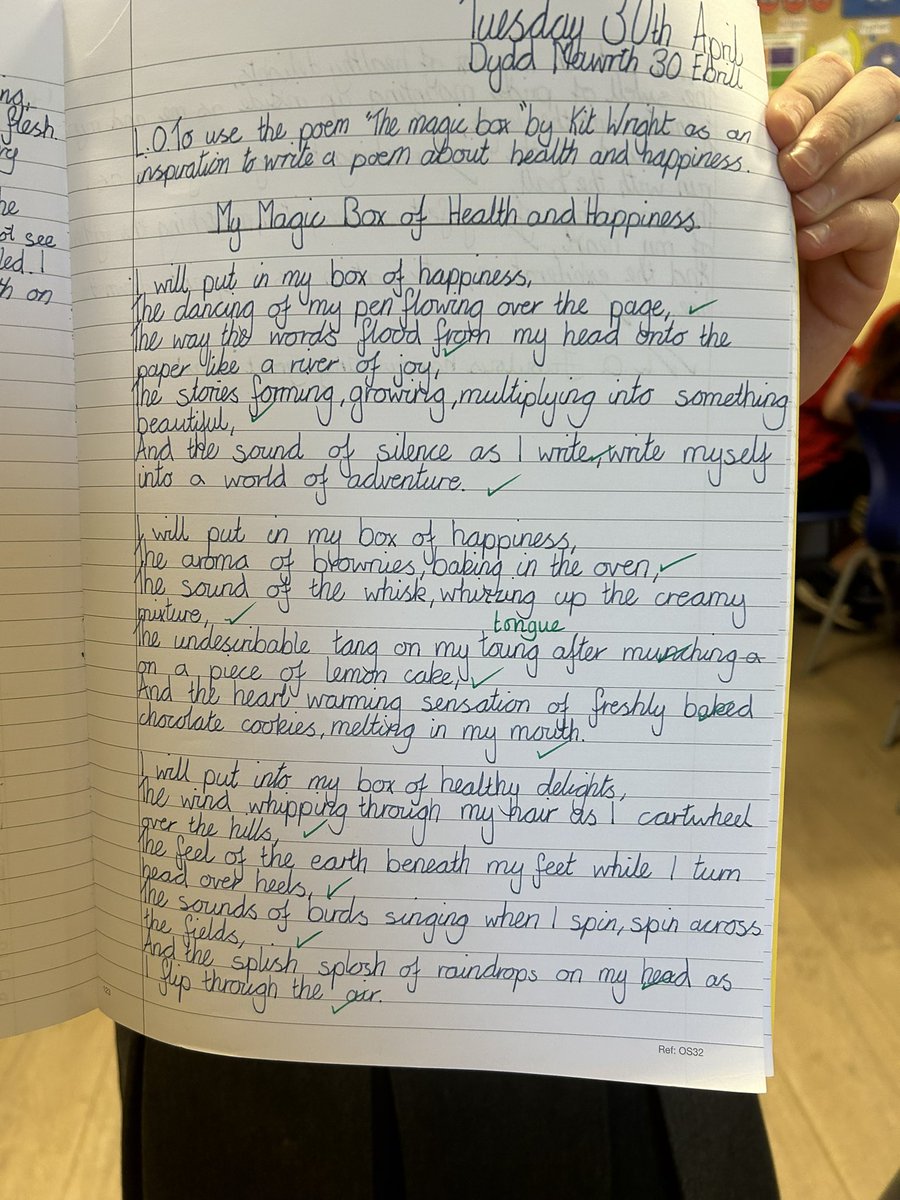 ng,
flesh.
ry
he
ot see
led. I
th on
Tuesday 30th April
Dydd Mawrth 30 Ebrill
L.O To use the poem "The magic box" by Kit Wright as an
inspiration to write a poem about health and happiness.
My Magic Box of Health and Happiness.
I will put in my box of happiness,
The dancing of my pen flowing over the page,
The way the words flood from my head onto the
paper like a river of joy,
The stories forming, growing, multiplying into something
beautiful,
And the sound of silence as I write, write myself
into a world of adventure.
I will put in my box of happiness,
The aroma of brownies, baking in the oven,
The sound of the whisk, whirring up the creamy
mixture,
tongue
The undescribable tang on my toung after munching a
on a piece of lemon cake,
And the heart warming sensation of freshly baked
chocolate cookies, melting in my mouth.
I will put into my box of healthy delights,
The wind whipping through my hair as I cartwheel
over the hills,
The feel of the earth beneath my feet while I turn
head over heels,
The sounds of birds singing when I spin, spin across
the fields,
And the splish, splosh of raindrops on my head as
I flip through the air.
123
Ref: OS32